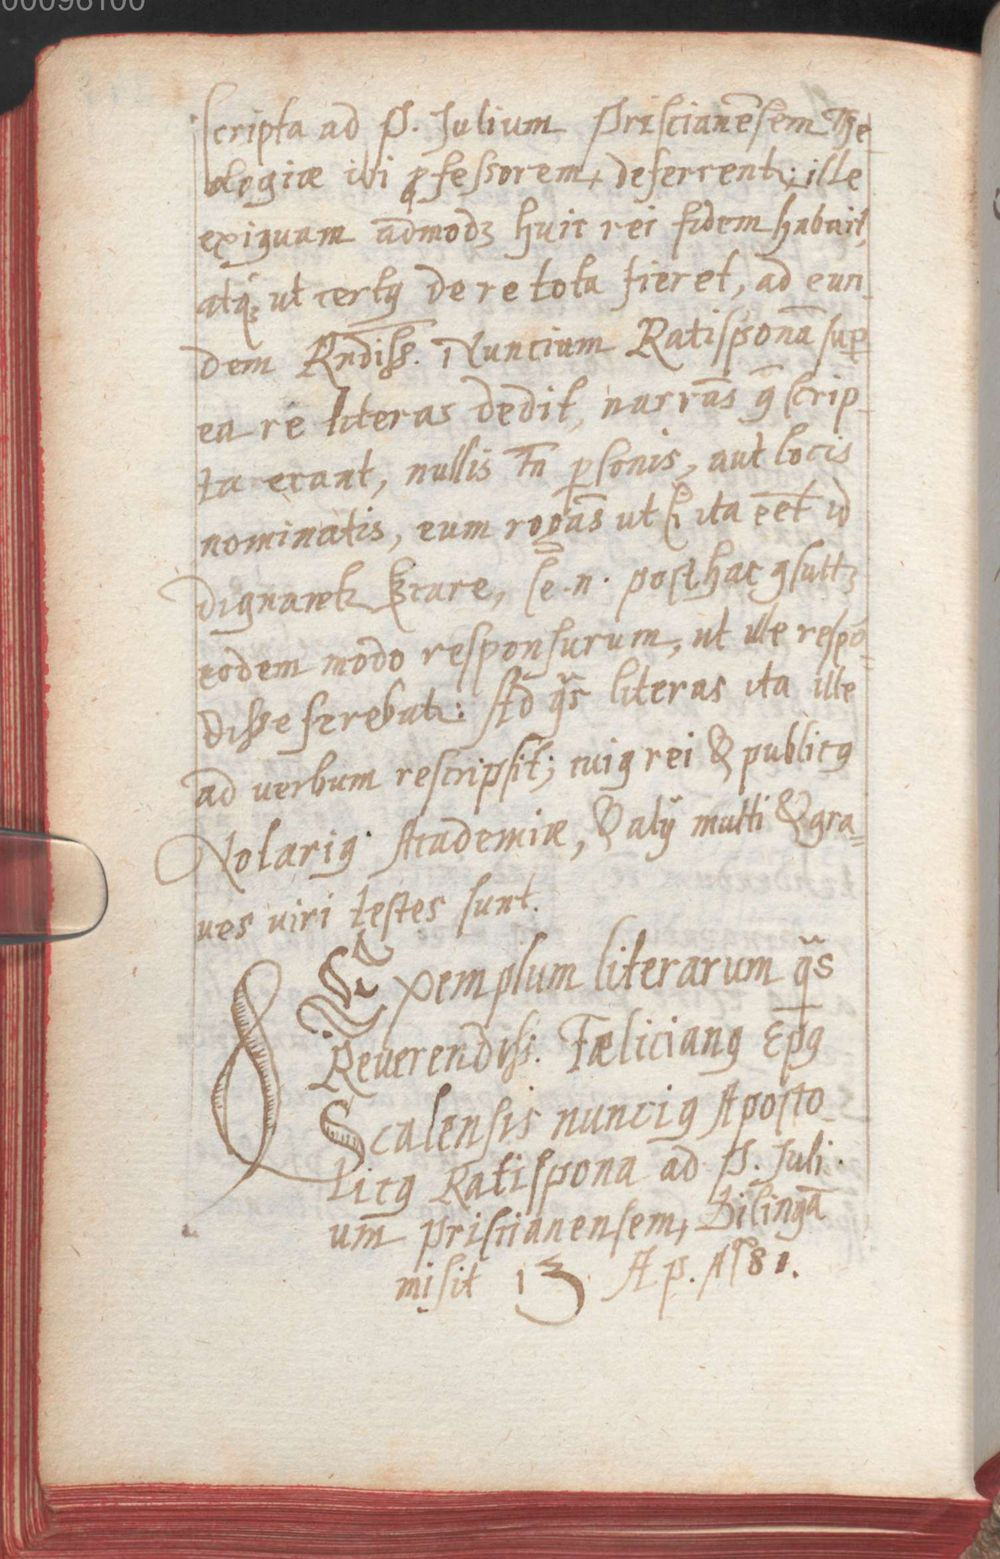 00096100
scripta ad P. Julium Priscianēsem The
ologiæ ibi ꝓfessorem, deferrentꝛ; ille
exiguam admodꝫ huic rei fidem habuit,
atqꝫ ut certꝯ de re tota fieret, ad eun
dem Rndiss. Nuncium Ratisponā suꝑ
ea re literas dedit, narrās q̄ scrip
ta erant, nullis tn̄ ꝑsonis, aut locis
nominatis, eum rogās ut si ita eēt id
dignaretꝛ, se .n. posthac
eodem modo responsurum, ut ille respō
disse ferebatꝛ: Ad qͣs literas ita ille
ad verbum rescripsit; cuiꝯ rei & publicꝯ
Notariꝯ Academiæ, & alij multi & gra
ves viri testes sunt.
Exemplum literarum qͣs
Reverendiss. Fæliciānꝯ Ep̄ꝯ
Scalensis nunciꝯ Aposto
licꝯ Ratispona ad P. Juli
um Priscianensem, Dilingā
misit 13 Ap. A° 81.